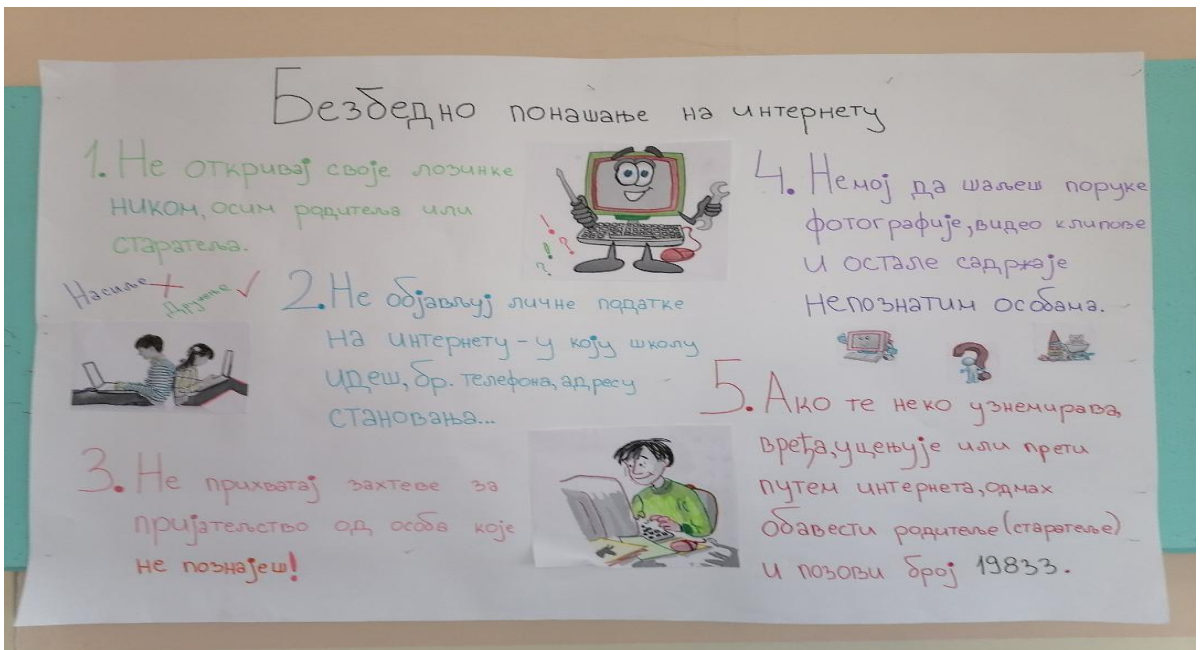 Безбедно понашање на интернету
1. Не откривај своје лозинке
ником, осим родитеља или
старатеља.
Насиље
Дружење
2. Не објављуј личне податке
на интернету - у коју школу
идеш, бр. телефона, адресу
становања...
3. Не прихватај захтеве за
пријатељство од особа које
не познајеш!
4. Немој да шаљеш поруке
фотографије, видео клипове
и остале садржаје
непознатим особама.
5. Ако те неко узнемирава,
вређа, уцењује или прети
путем интернета, одмах
обавести родитеље (старатеље)
и позови број 19833.